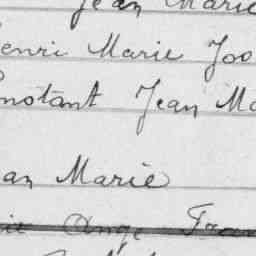 Jean Marie
enri Marie Joo
nstant Jean Ma
an Marie
ie Ange Fran